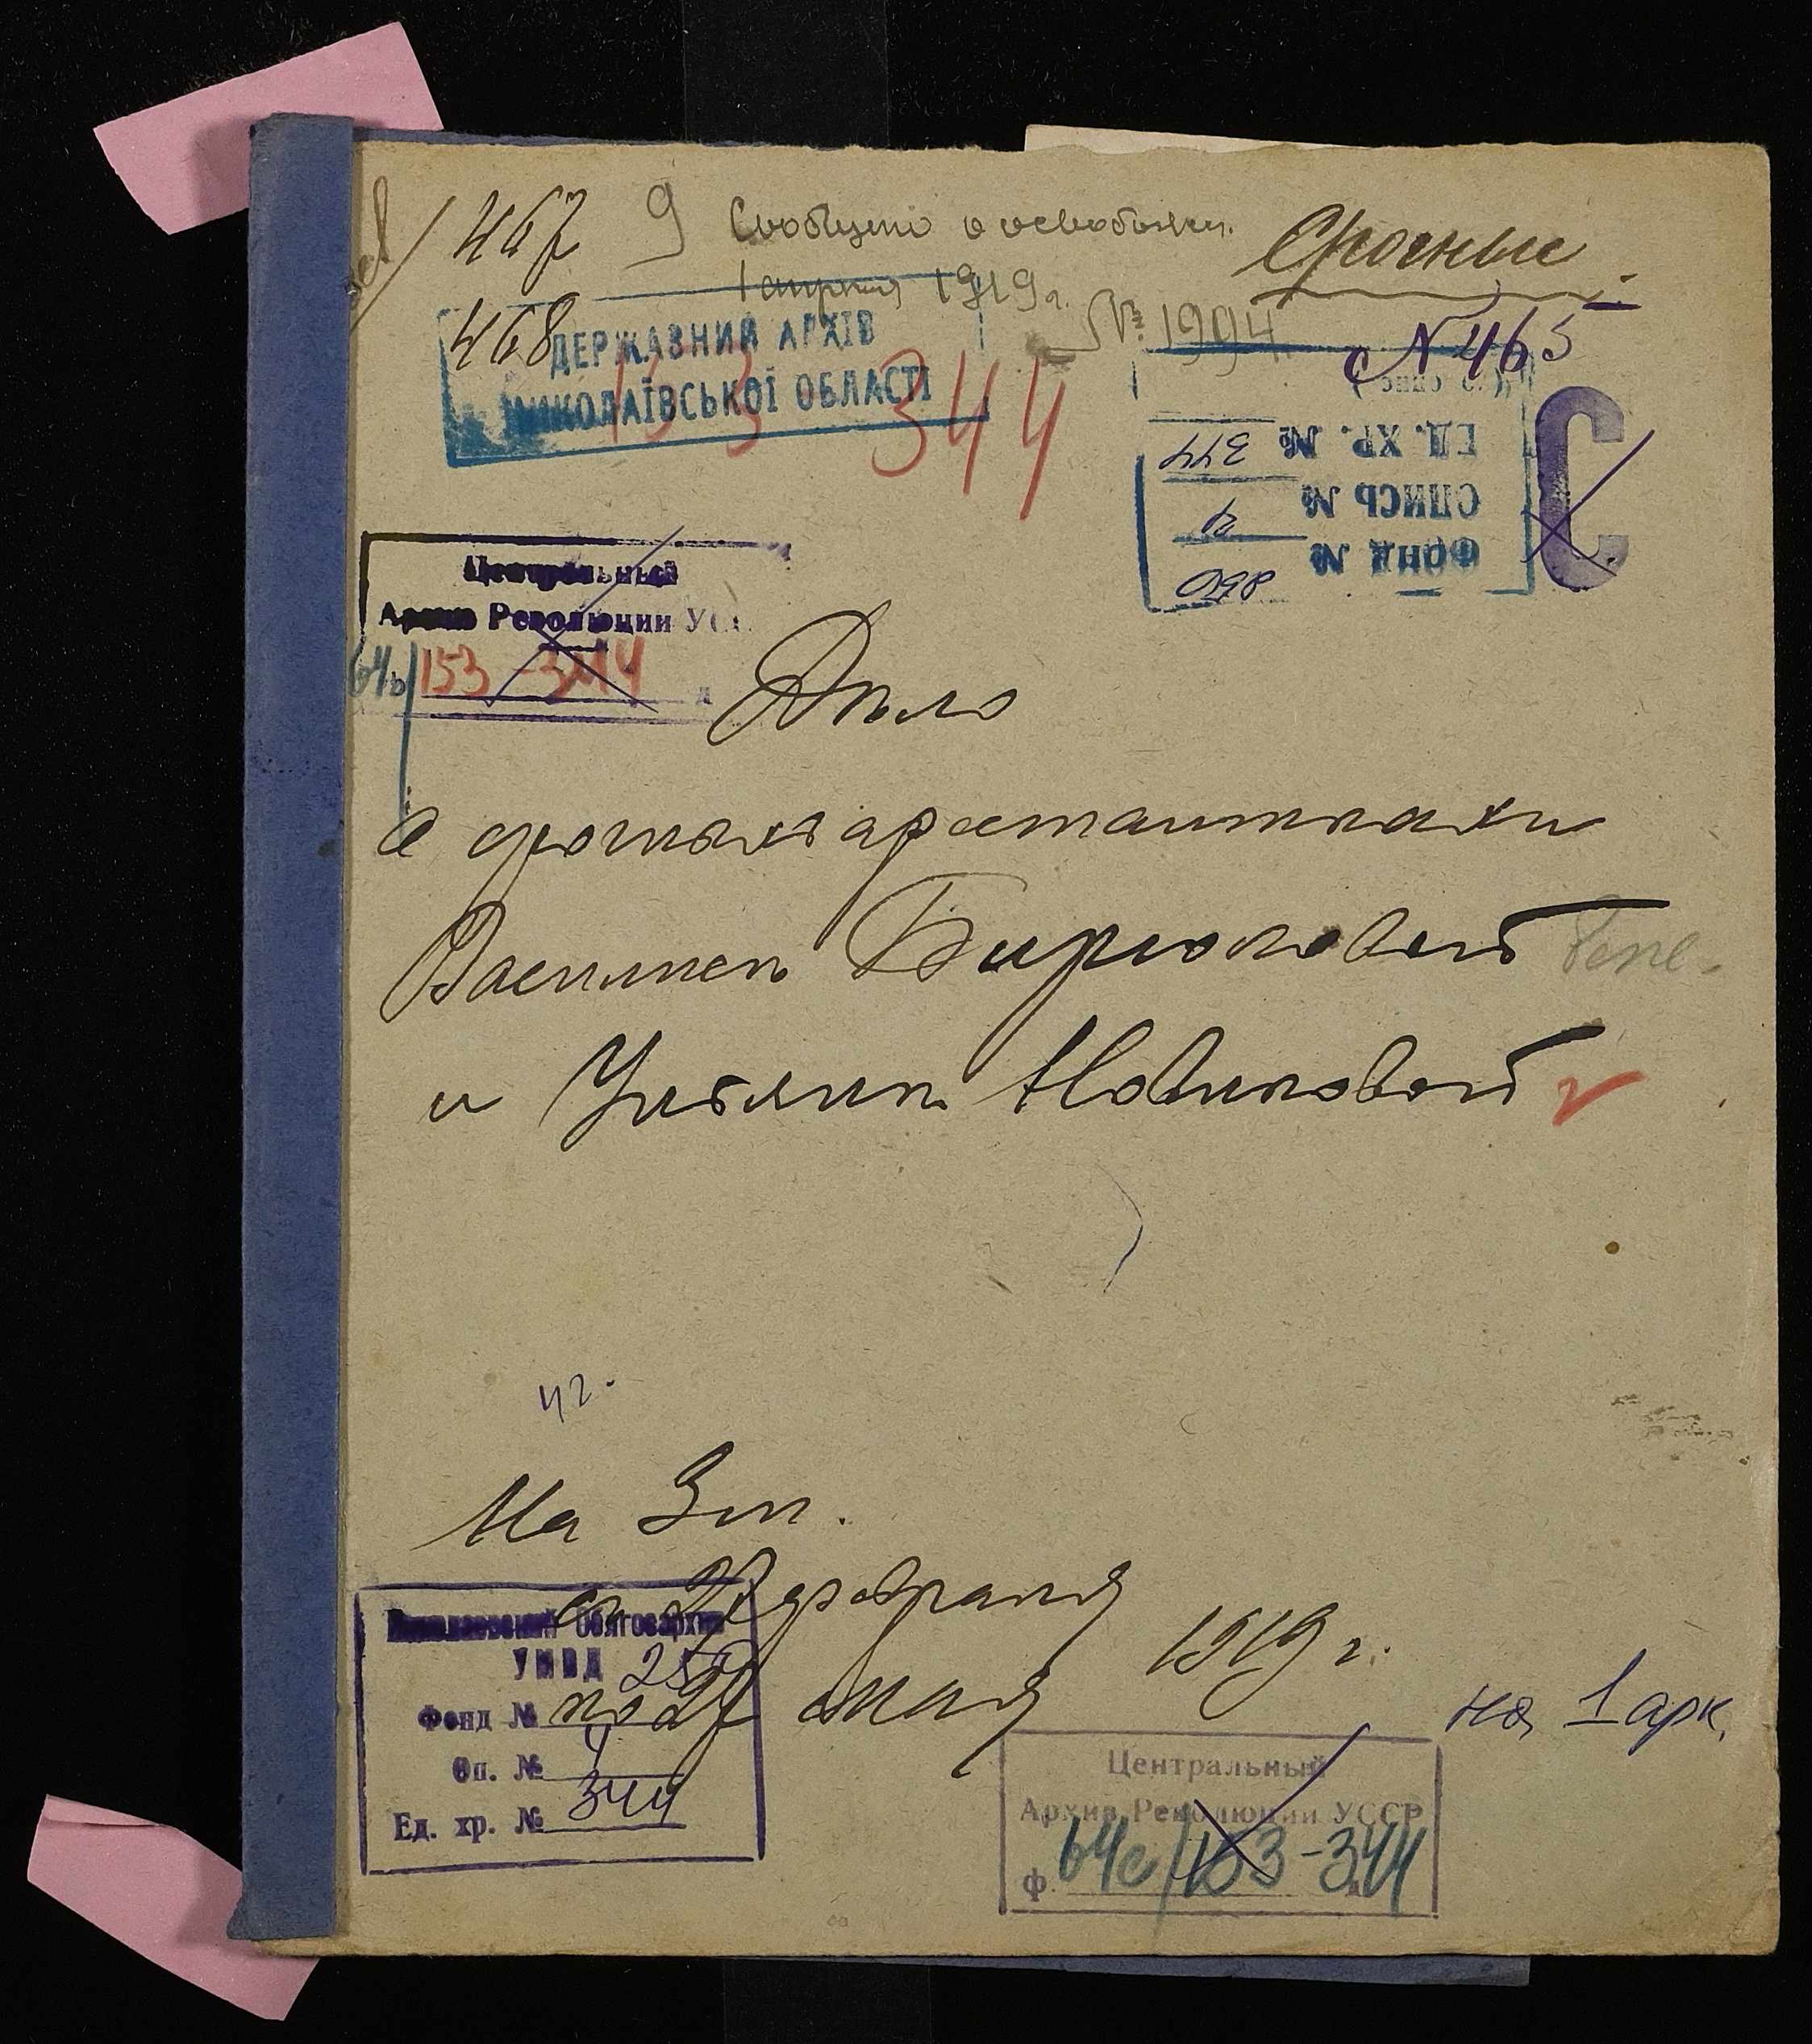 467 9 Сообщено о освобожд.
1 апреля 1919 г.
Срочные
№ 1904
№ 465
468
ДЕРЖАВНИЙ АРХІВ
МИКОЛАЇВСЬКОЇ ОБЛАСТІ
153 344
ФОНД №
ОПИСЬ № 4
ЕД. ХР. № 344
С
Центральный
Архив Революции УССР
64с/153-344
Дѣло
о срочных арестантках
Василисѣ Бирюковой
и Ульянѣ Новиковой
42.
На 3 м.
съ 27 февраля
по 27 мая
1919 г.
на 1 арк.
Николаевский Облгосархив
УМВД
Фонд №
Оп. № 4
Ед. хр. № 344
Центральный
Архив Революции УССР
ф. 64с/153-344